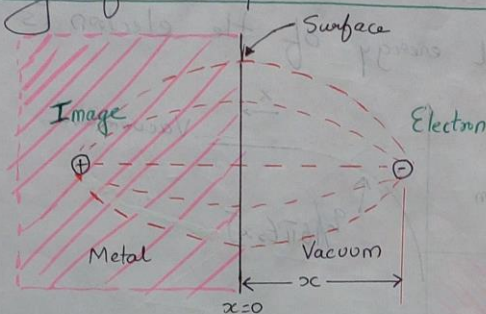 Surface
Image
Electron
+
-
Metal
Vacuum
x
x=0